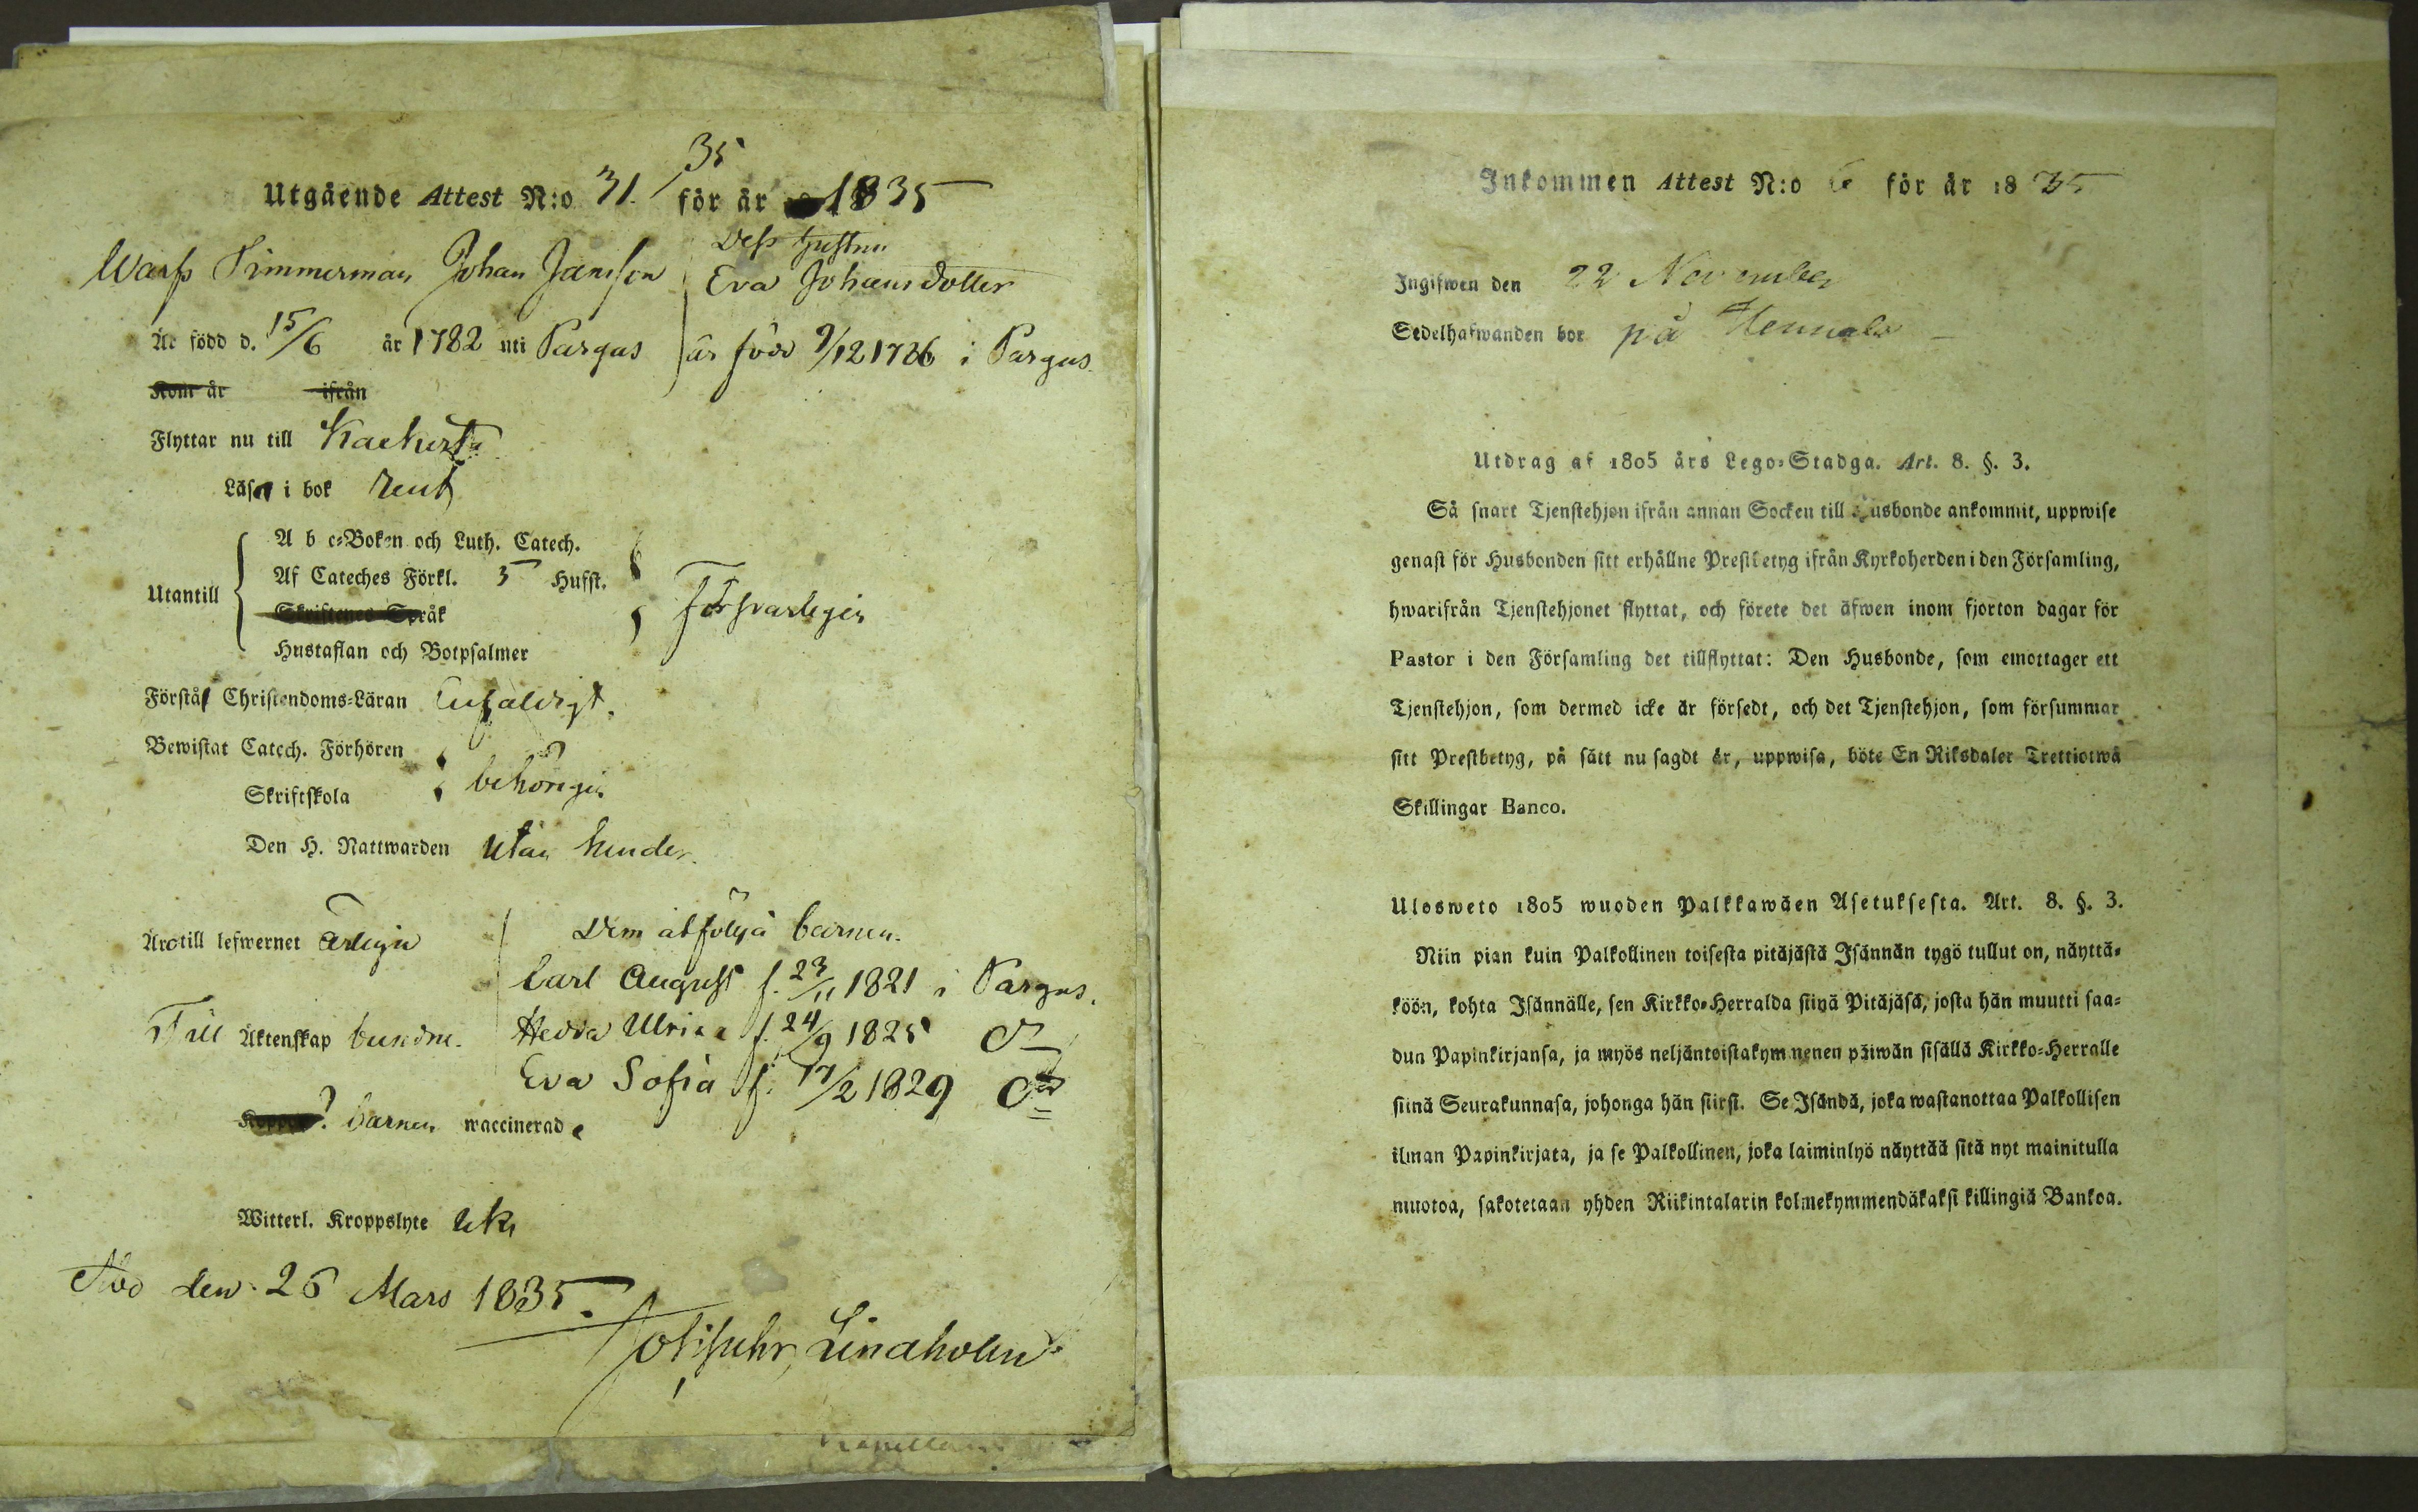 35
Utgående Attest N:o 31. för år 1835
Warfs Timmerman Johan Jansson
Dess Hustru
Eva Johansdotter
Är född d. 15/6 år 1782 uti Pargas
är född 9/12 1786 i Pargas.
Kom år ifrån
Flyttar nu till Kackerta
Läsa i bok rent
Utantill
A b c-Boken och Luth. Catech.
Af Cateches Förkl. 5 Husst.
Skriftenes Språk
Hustaflan och Botpsalmer
försvarligen
Förstå Christendoms-Läran Enfaldigt.
Bewistat Catech. Förhören
Skriftskola
behörigen
Den H. Nattwarden utan hinder.
Äro till lefwernet ärlige
Dem åtfölja barnen.
Carl August f. 23/11 1821 i Pargas.
Till Äktenskap bundne.
Hedda Ulrica f. 24/9 1825 Do
Eva Sofia f. 17/2 1829 Do
barnen waccinerade
Witterl. Kroppslyte
Åbo den 26 Mars 1835.
Lindholm
Inkommen Attest N:o 6 för år 1835
Ingifwen den 22 November
Sedelhafwanden bor på
Utdrag af 1805 års Lego-Stadga. Art. 8. §. 3.
Så snart Tjenstehjon ifrån annan Socken till Husbonde ankommit, uppwise
genast för Husbonden sitt erhållne Prestbetyg ifrån Kyrkoherden i den Församling,
hwarifrån Tjenstehjonet flyttat, och förete det äfwen inom fjorton dagar för
Pastor i den Församling det tillflyttat: Den Husbonde, som emottager ett
Tjenstehjon, som dermed icke är försedt, och det Tjenstehjon, som försummar
sitt Prestbetyg, på sätt nu sagdt är, uppwisa, böte En Riksdaler Trettiotwå
Skillingar Banco.
Ulosweto 1805 wuoden Palkkawäen Asetuksesta. Art. 8. §. 3.
Niin pian kuin Palkollinen toisesta pitäjästä Isännän tygö tullut on, näyttä-
köön, kohta Isännälle, sen Kirkko-Herralda siinä Pitäjäsä, josta hän muutti saa-
dun Papinkirjansa, ja myös neljäntoistakymmenen päiwän sisällä Kirkko-Herralle
siinä Seurakunnasa, johonga hän siirsi. Se Isändä, joka wastanottaa Palkollisen
ilman Papinkirjata, ja se Palkollinen, joka laiminlyö näyttää sitä nyt mainitulla
muotoa, sakotetaan yhden Riikintalarin kolmekymmendäkaksi killingiä Bankoa.